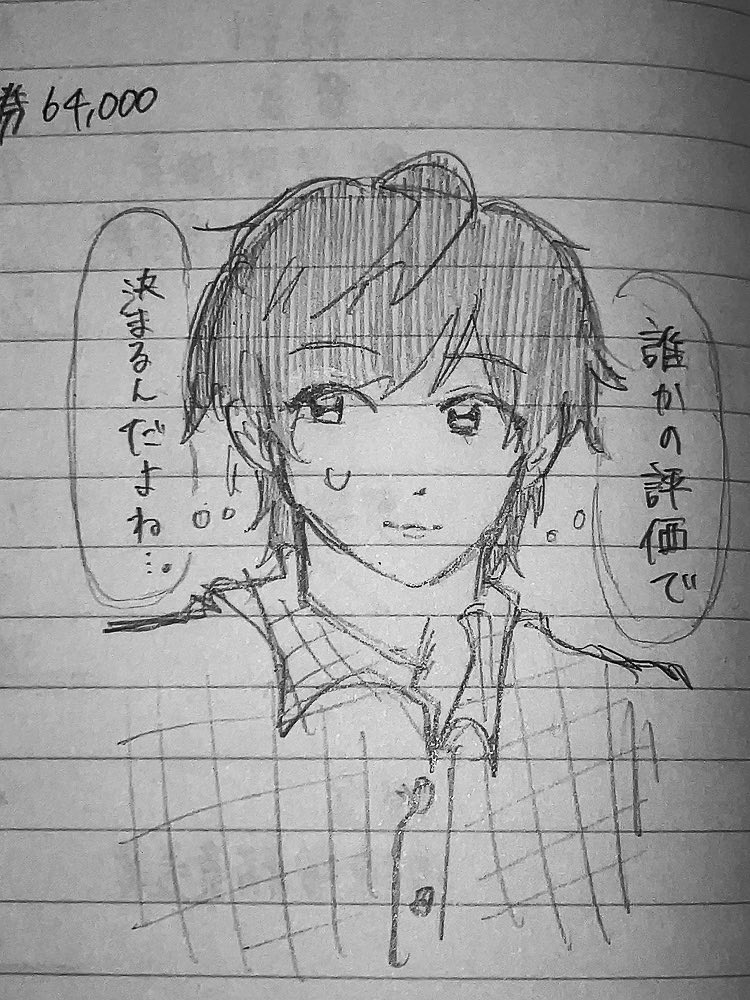 券 64,000
誰かの評価で
決まるんだよね…。